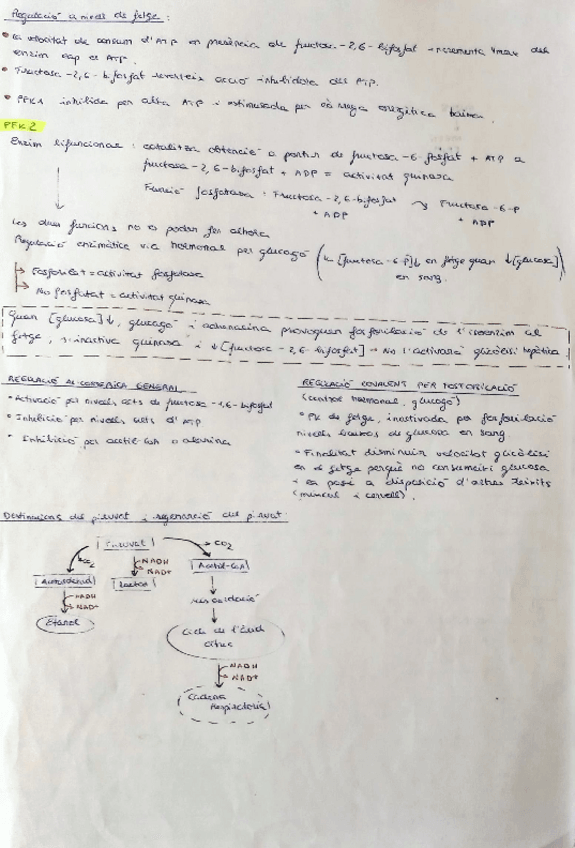 Regulació a nivell de fetge:
• La velocitat de consum d'ATP en presència de fructosa-2,6-bifosfat incrementa Vmax del
enzim cap a ATP.
• Fructosa-2,6-bifosfat reverteix acció inhibidora del ATP.
• PFK1 inhibida per alta ATP i estimulada per càrrega energètica baixa.
PFK2
Enzim bifuncional: catalitza obtenció a partir de fructosa-6-fosfat + ATP a
fructosa-2,6-bifosfat + ADP = activitat quinasa
Funció fosfatasa: Fructosa-2,6-bifosfat → Fructosa-6-P
+ ADP + ADP
Les dues funcions no es poden fer alhora
Regulació enzimàtica via hormonal per glucagó ( [fructosa-6-P]↓ en fetge quan ↓[glucosa]
en sang. )
→ Fosforilat = activitat fosfatasa
→ No fosfatat = activitat quinasa
Quan [glucosa]↓, glucagó i adrenalina provoquen fosforilació de l'isoenzim al
fetge, s'inactiva quinasa i ↓[fructosa-2,6-bifosfat] → No l'activarà glicòlisi hepàtica
REGULACIÓ AL·LOSTÈRICA GENERAL
• Activació per nivells alts de fructosa-1,6-bifosfat
• Inhibició per nivells alts d'ATP
• Inhibició per acetil-CoA o alanina
REGULACIÓ COVALENT PER FOSFORILACIÓ
(control hormonal, glucagó)
• PK de fetge, inactivada per fosforilació
nivells baixos de glucosa en sang.
- Finalitat disminuir velocitat glicòlisi
en el fetge perquè no consumeixi glucosa
i es posi a disposició d'altres teixits
(muscul i cervell).
Destinacions del piruvat i regeneració del piruvat:
Piruvat
CO2
CO2
NADH
NAD+
Acetaldehid
Lactat
Acetil-CoA
NADH
NAD+
Etanol
Cicle de l'Àcid
Cítric
NADH
NAD+
Cadena
Respiratòria